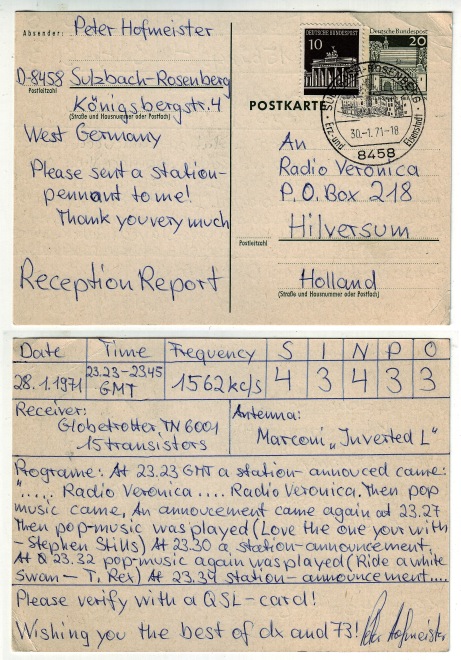 Absender: Peter Hofmeister
D-8458 Sulzbach-Rosenberg
Postleitzahl
Königsbergstr. 4
(Straße und Hausnummer oder Postfach)
West Germany
Please sent a station-
pennant to me!
Thank you very much
Reception Report
DEUTSCHE BUNDESPOST
10
Deutsche Bundespost
20
POSTKARTE
SULZBACH-ROSENBERG
30.-1.71-18
Erz- und Eisenstadt
8458
An
Radio Veronica
P.O. Box 218
Hilversum
Postleitzahl
Holland
(Straße und Hausnummer oder Postfach)
Date Time Frequency S I N P O
28.1.1971 23.23-23.45 GMT 1562 kc/s 4 3 4 3 3
Receiver: Antenna:
Globetrotter TN 6001 Marconi „Inverted L"
15 transistors
Programe: At 23.23 GMT a station-annouced came:
"..... Radio Veronica .... Radio Veronica. Then pop
music came, An annoucement came again at 23.27
Then pop-music was played (Love the one your with
- Stephen Stills) At 23.30 a station-announcement.
At 23.32 pop-music again was played (Ride a white
Swan - T. Rex) At 23.34 station-announcement....
Please verify with a QSL-card!
Wishing you the best of dx and 73! Peter Hofmeister